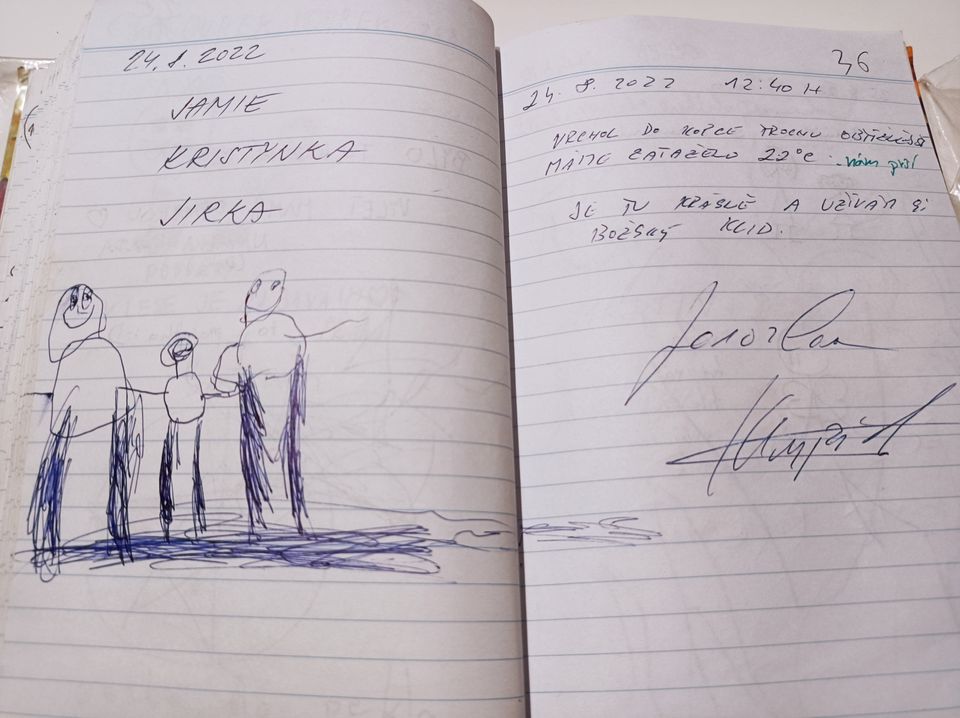 24.8.2022
JAMIE
KRISTÝNKA
JIRKA
36
24. 8. 2022 12:40 H
VRCHOL DO KOPCE TROCHU
MÁME ZATAŽENO 22°C nám prší
JE TU KRÁSNĚ A UŽÍVÁM SI
BOŽSKÝ KLID.